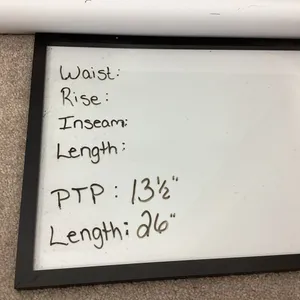 Waist:
Rise:
Inseam:
Length:
PTP: 13½"
Length: 26"